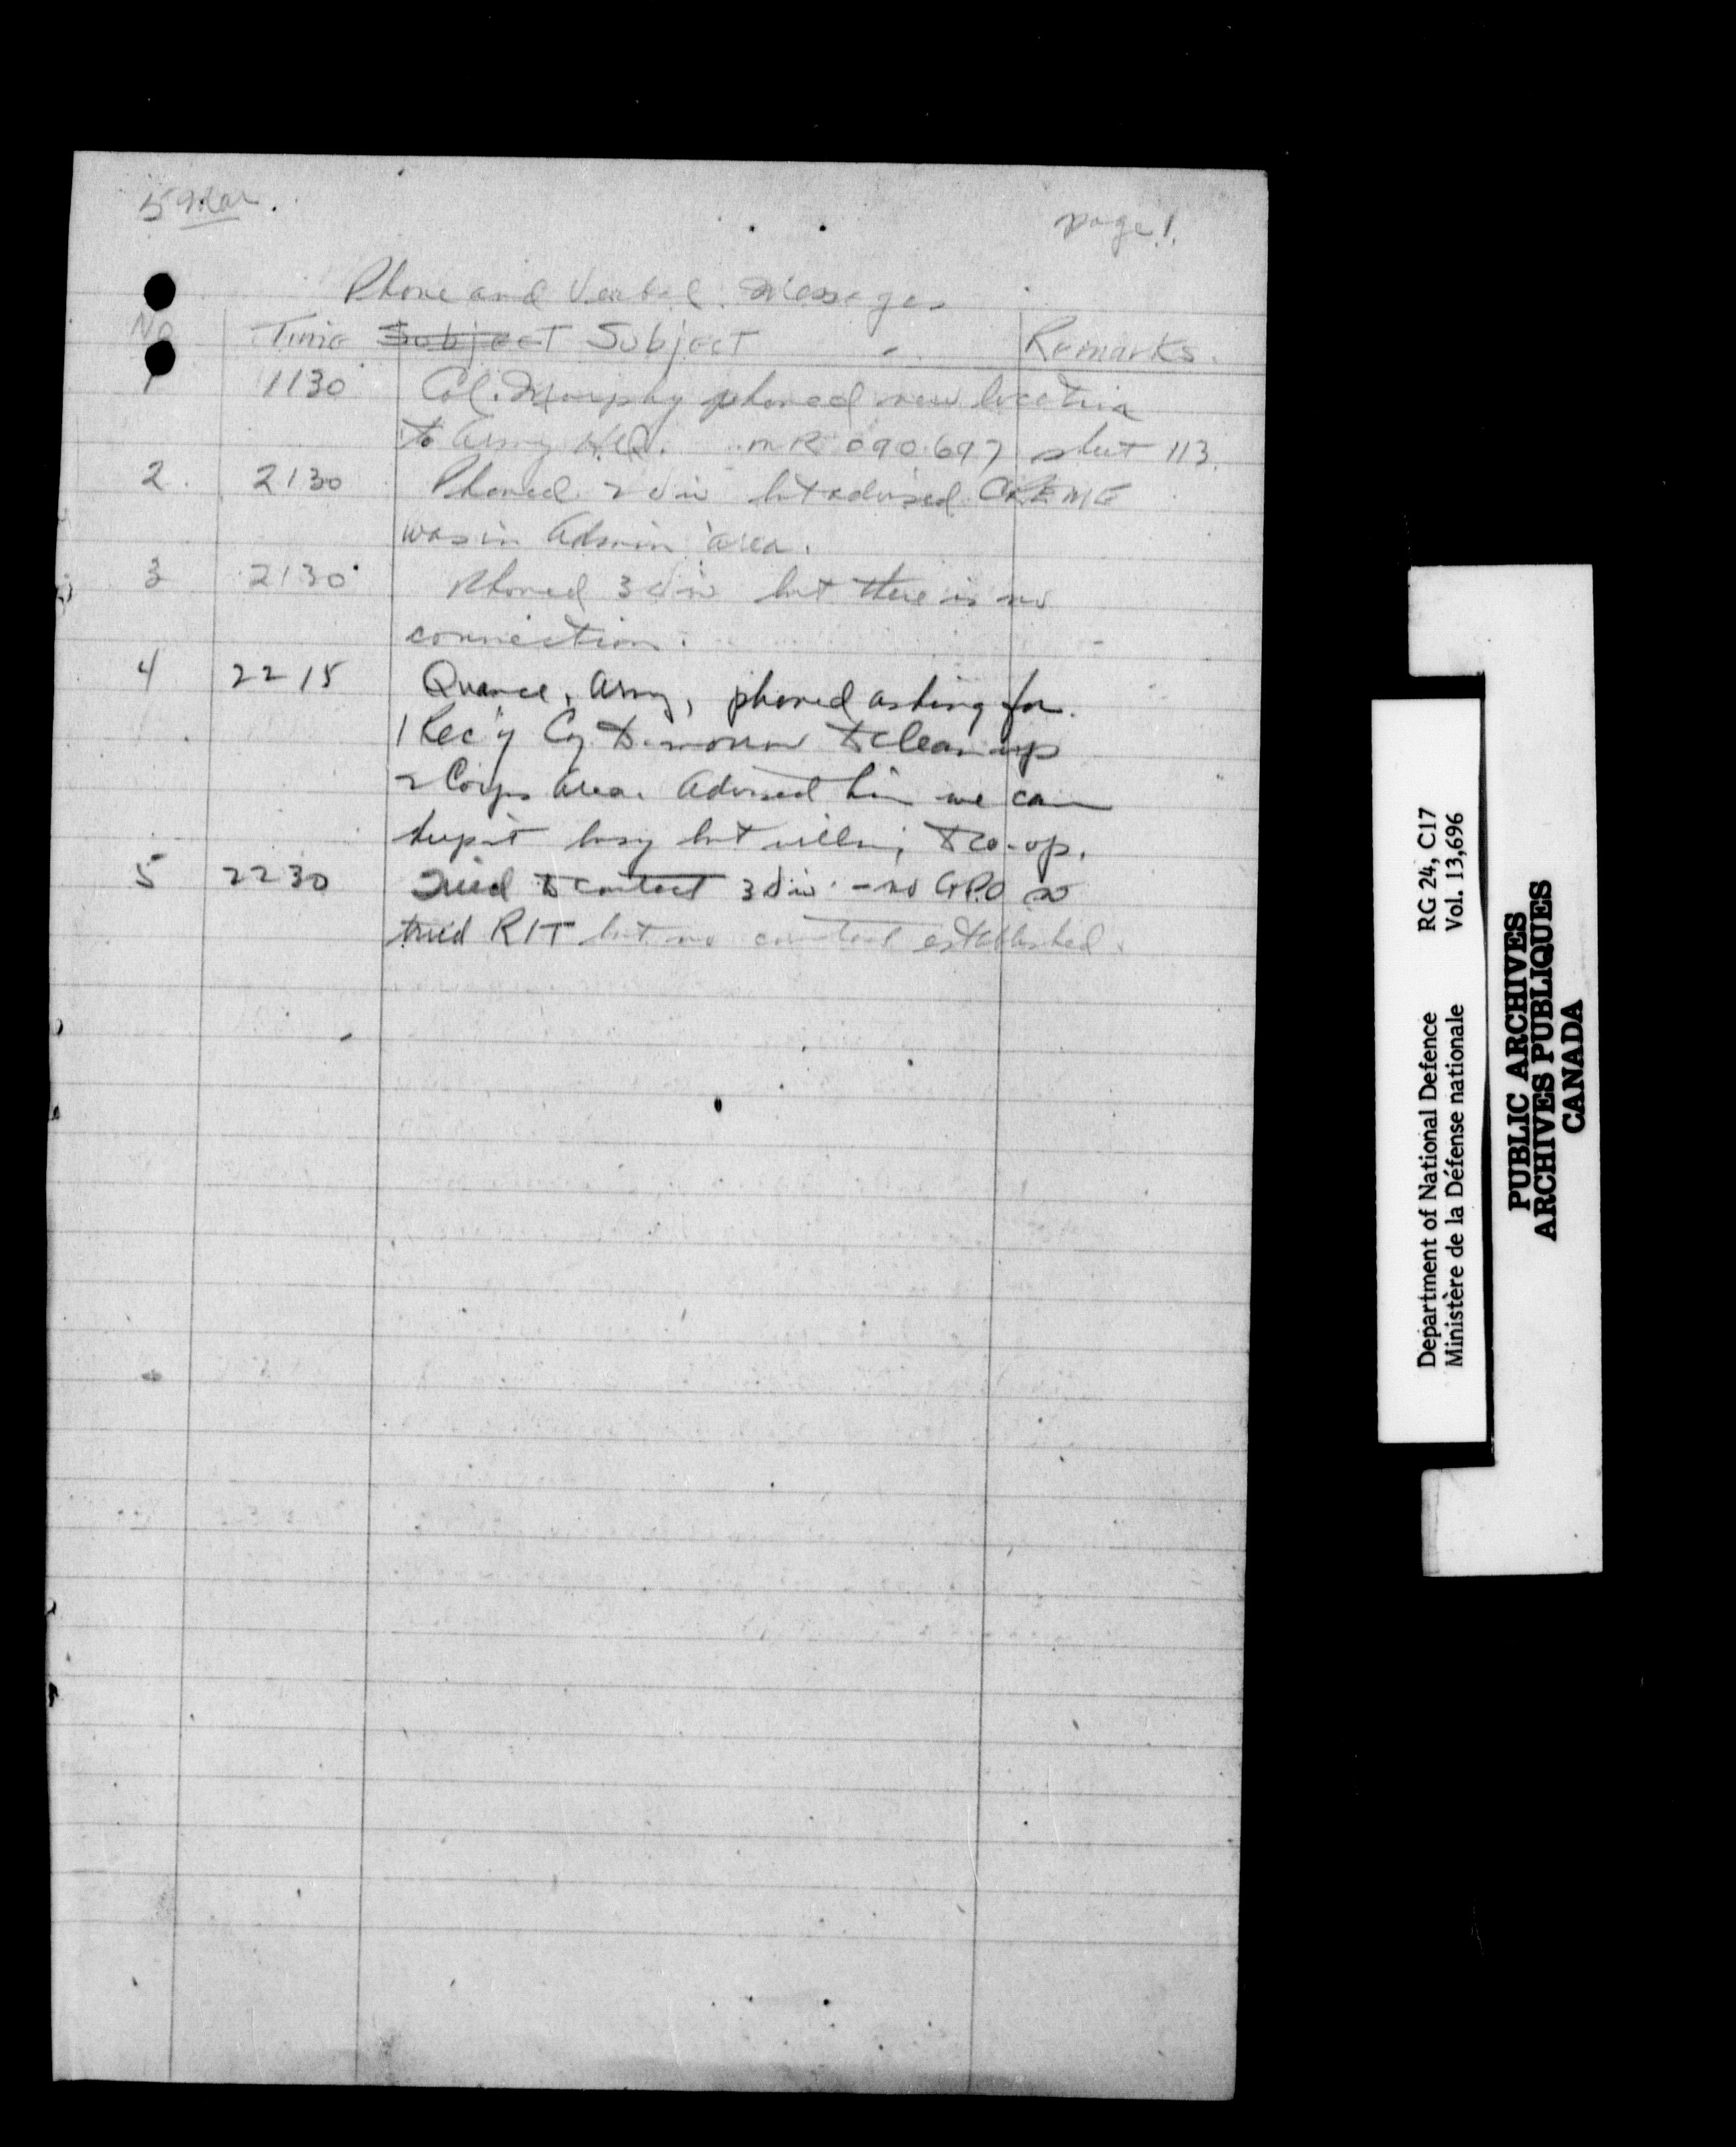 5 Mar.
page 1.
Phone and Verbal Messages
No Time Subject Subject Remarks.
1 1130 Col. Murphy phoned new location
to Army H.Q. MR 090.697 sheet 113.
2. 2130 Phoned 2 div but advised CREME
was in Admin area.
3 2130 Phoned 3 div but there is no
connection.
4 2215 Quance, Army, phoned asking for
1 Rec'y Cy tomorrow to clean up
2 Corps area. Advised him we can
keep it busy but willing to co-op.
5 2230 Tried to contact 3 div - no GPO so
tried R/T but no contact established.
Department of National Defence RG 24, C17
Ministère de la Défense nationale Vol. 13,696
PUBLIC ARCHIVES
ARCHIVES PUBLIQUES
CANADA